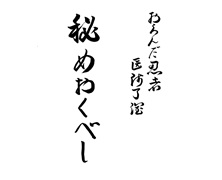 おらんだ忍者
医師了潤
秘めおくべし